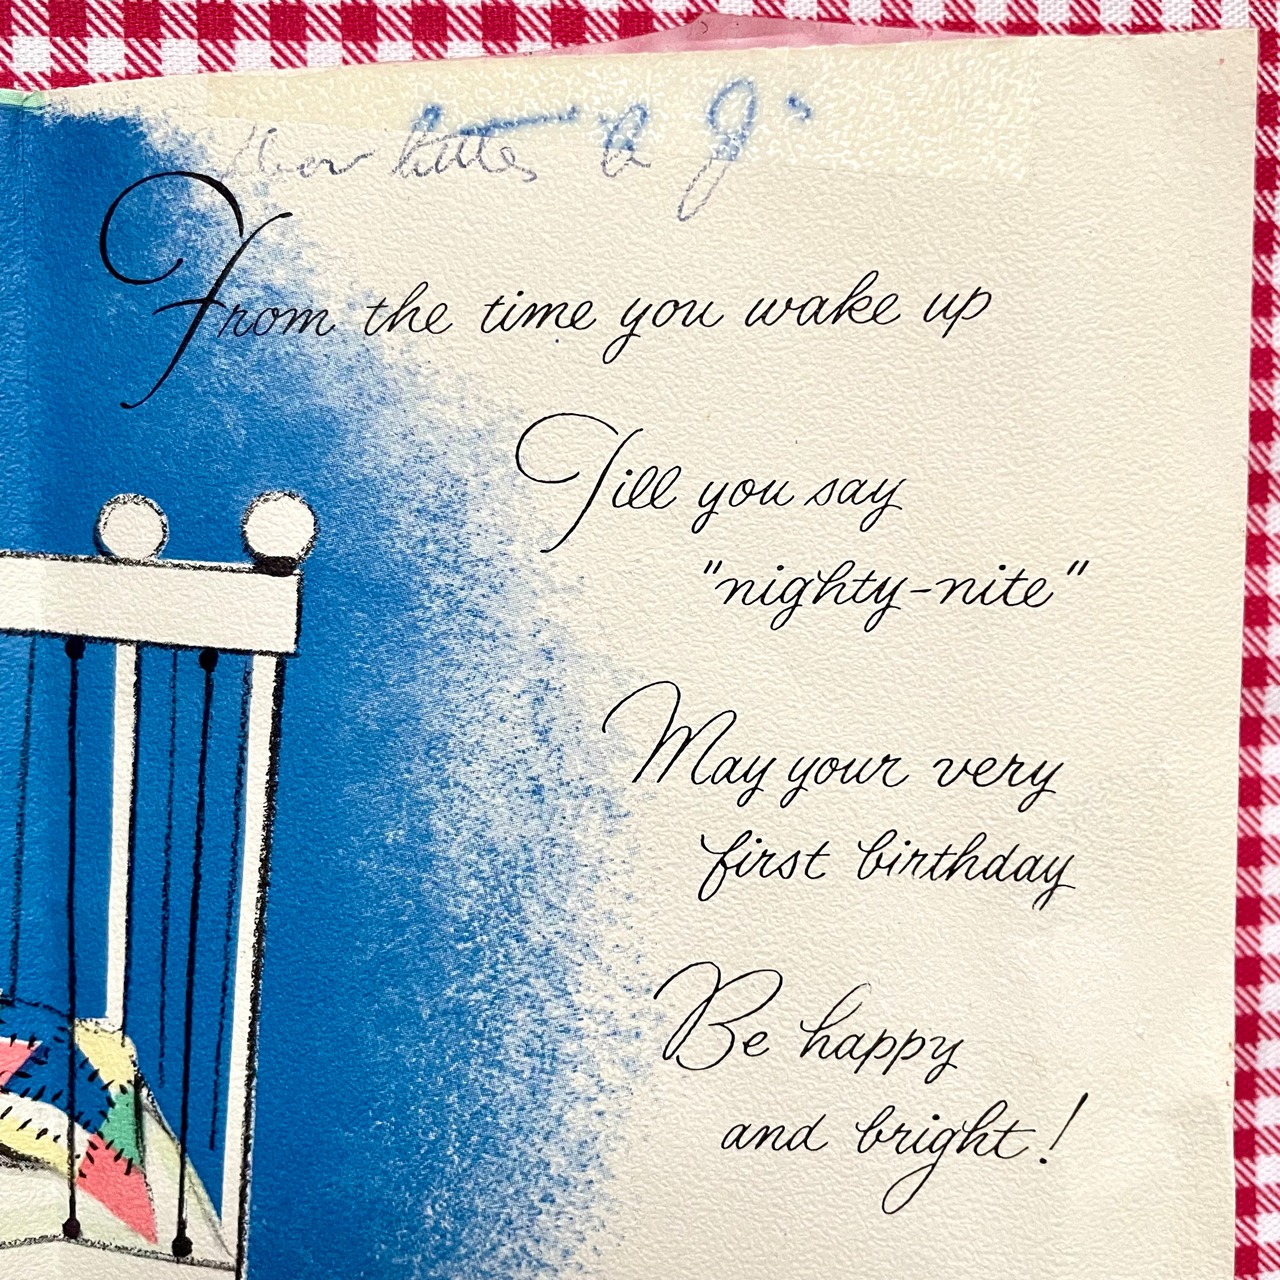 Dear little B J
From the time you wake up
Till you say
"nighty-nite"
May your very
first birthday
Be happy
and bright!